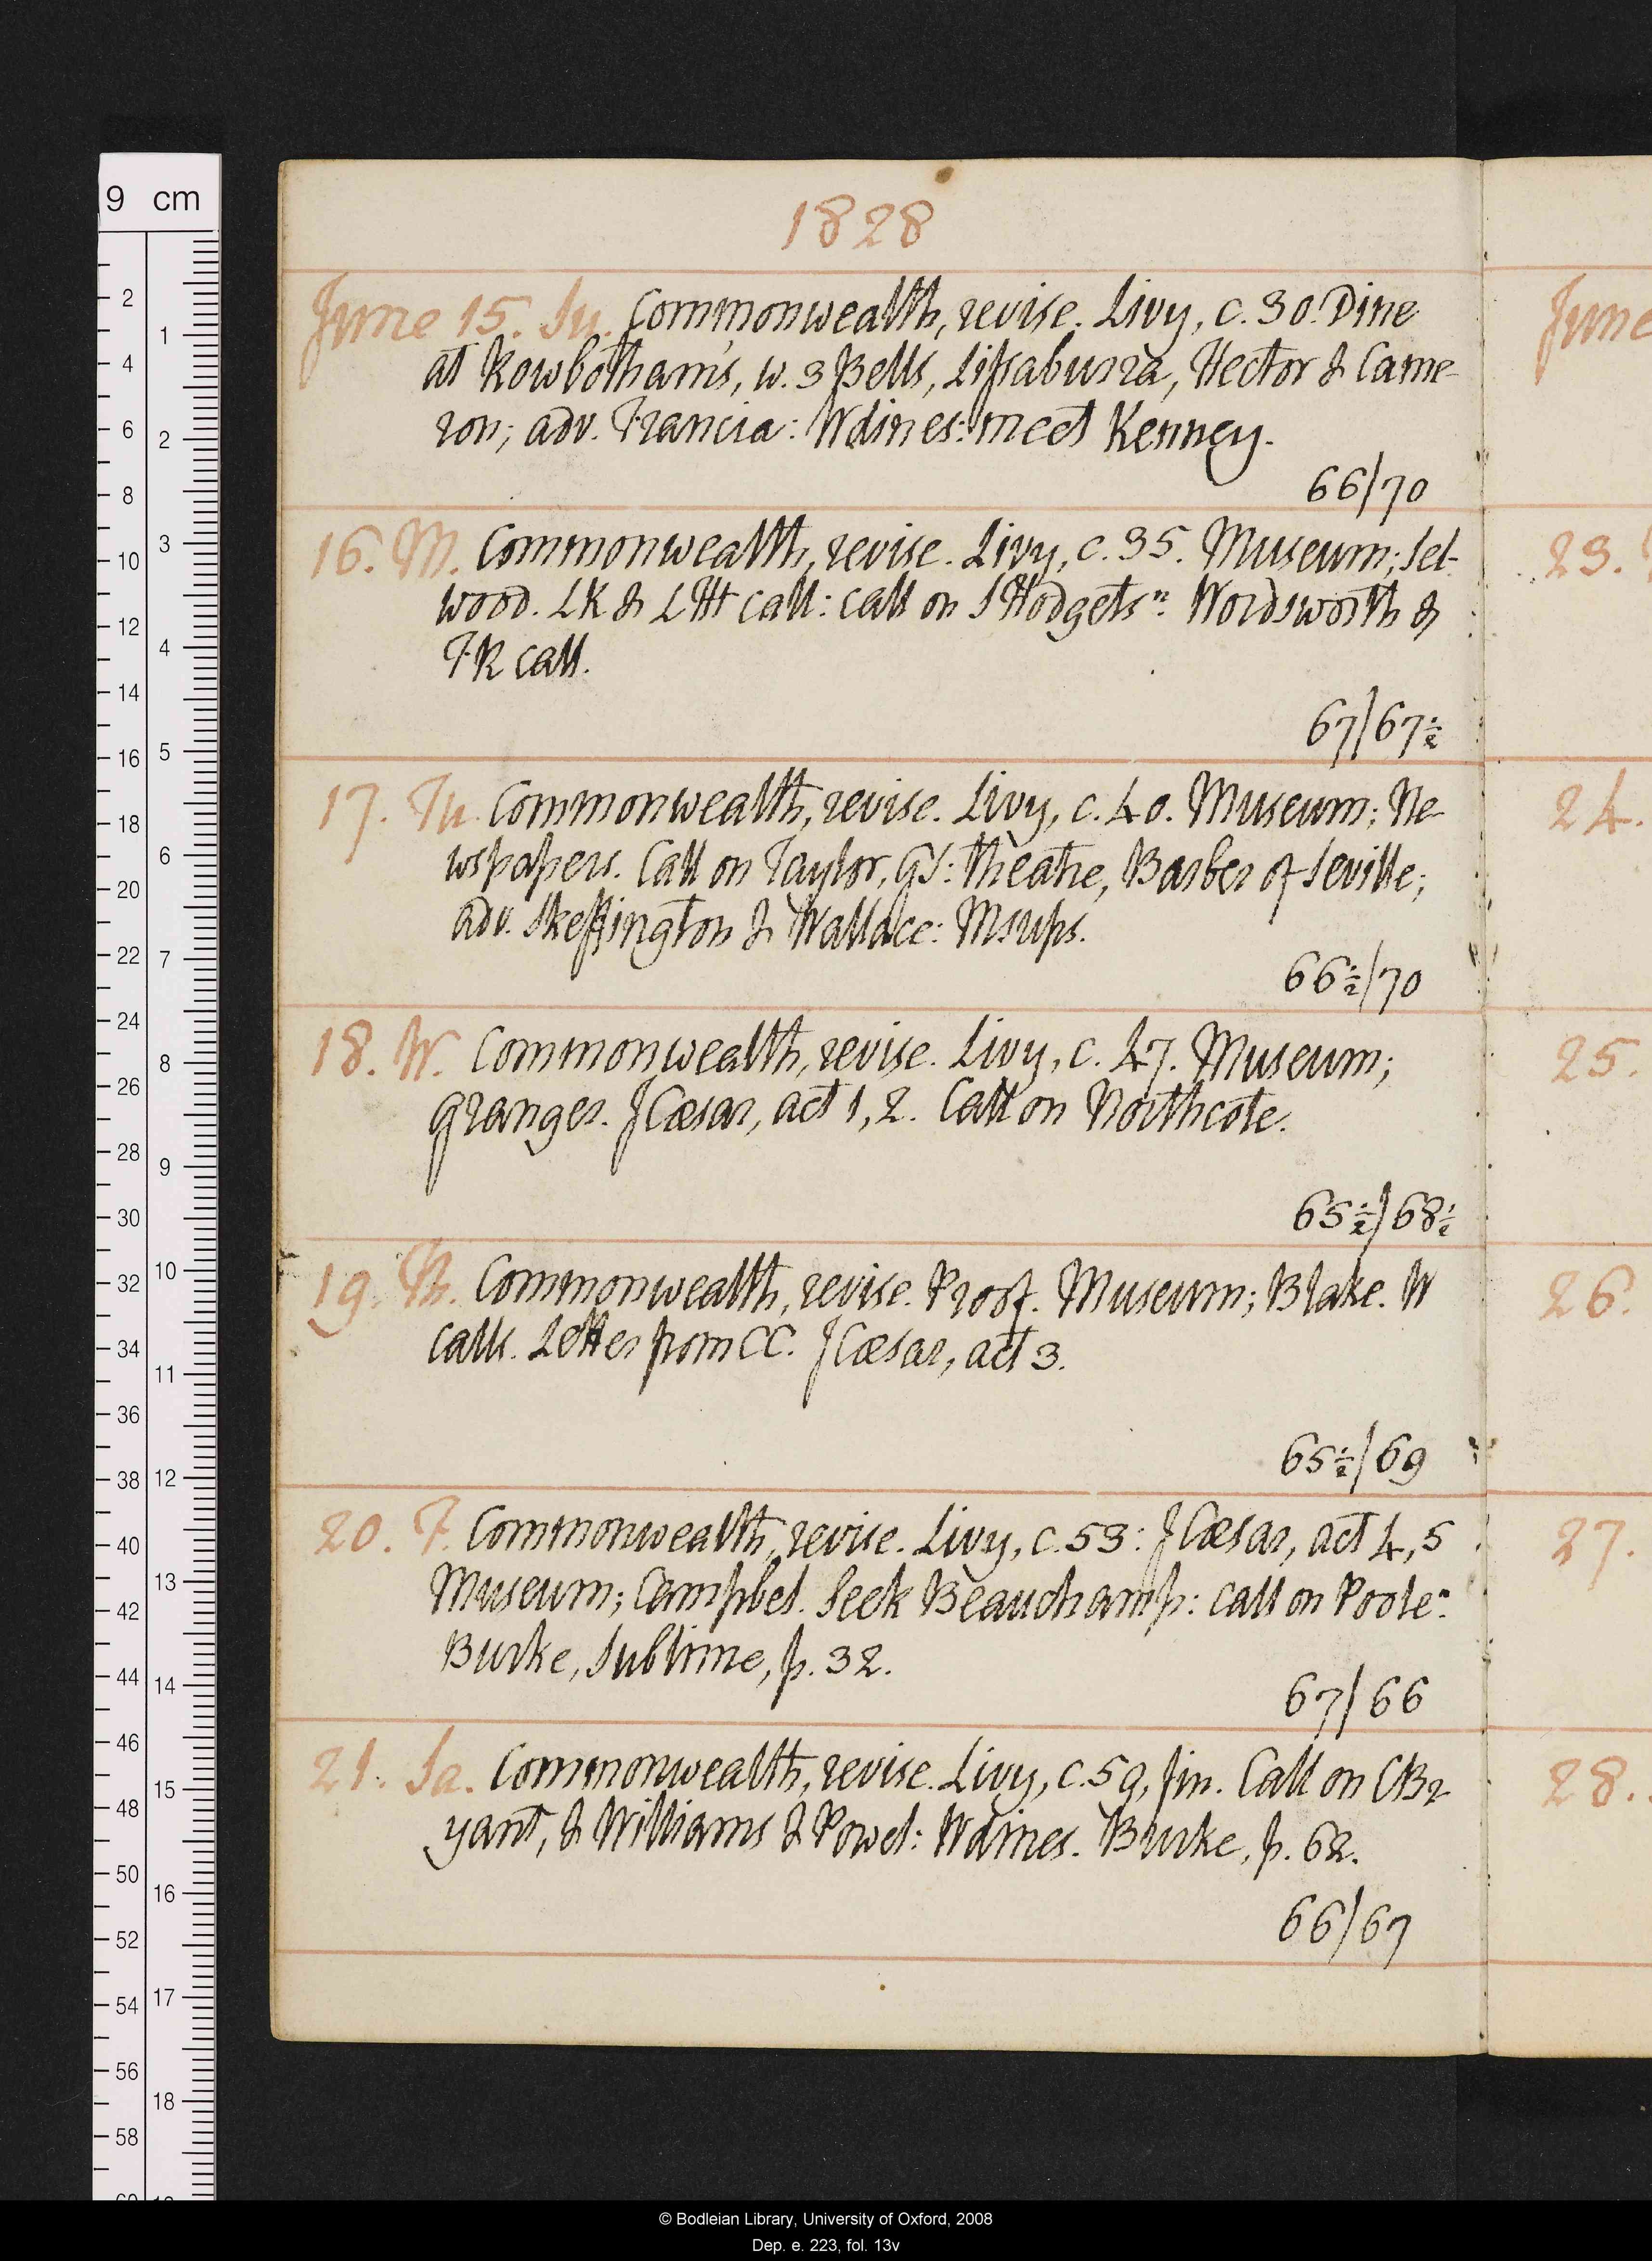 1828
June 15. Su. Commonwealth, revise. Livy, c. 30. Dine
at Rowbotham's, w. 3 Bells, Lissaburra, Hector & Came-
ron; adv. Francia: W dines: meet Kenney.
66/70
16. M. Commonwealth, revise. Livy, c. 35. Museum; Sel-
wood. LK & LHt call: call on S Hodgets n. Wordsworth &
TR call.
67/67½
17. Tu. Commonwealth, revise. Livy, c. 40. Museum; Ne-
wspapers. Call on Taylor, GS: theatre, Barber of Seville;
adv. Skeffington & Wallace: M sups.
66½/70
18. W. Commonwealth, revise. Livy, c. 47. Museum;
Granger. J Cæsar, act 1, 2. Call on Northcote.
65½/68½
19. Th. Commonwealth, revise. Proof. Museum; Blake. W
calls. Letter from CC. J Cæsar, act 3.
65½/69
20. F. Commonwealth, revise. Livy, c. 53: J Cæsar, act 4, 5
Museum; Campbel. Seek Beauchamp: call on Poole n.
Burke, Sublime, p. 32.
67/66
21. Sa. Commonwealth, revise. Livy, c. 59, fin. Call on CBr
yant, & Williams & Powel: W dines. Burke, p. 62.
66/67
June
23.
24.
25.
26.
27.
28.
9 cm
© Bodleian Library, University of Oxford, 2008
Dep. e. 223, fol. 13v